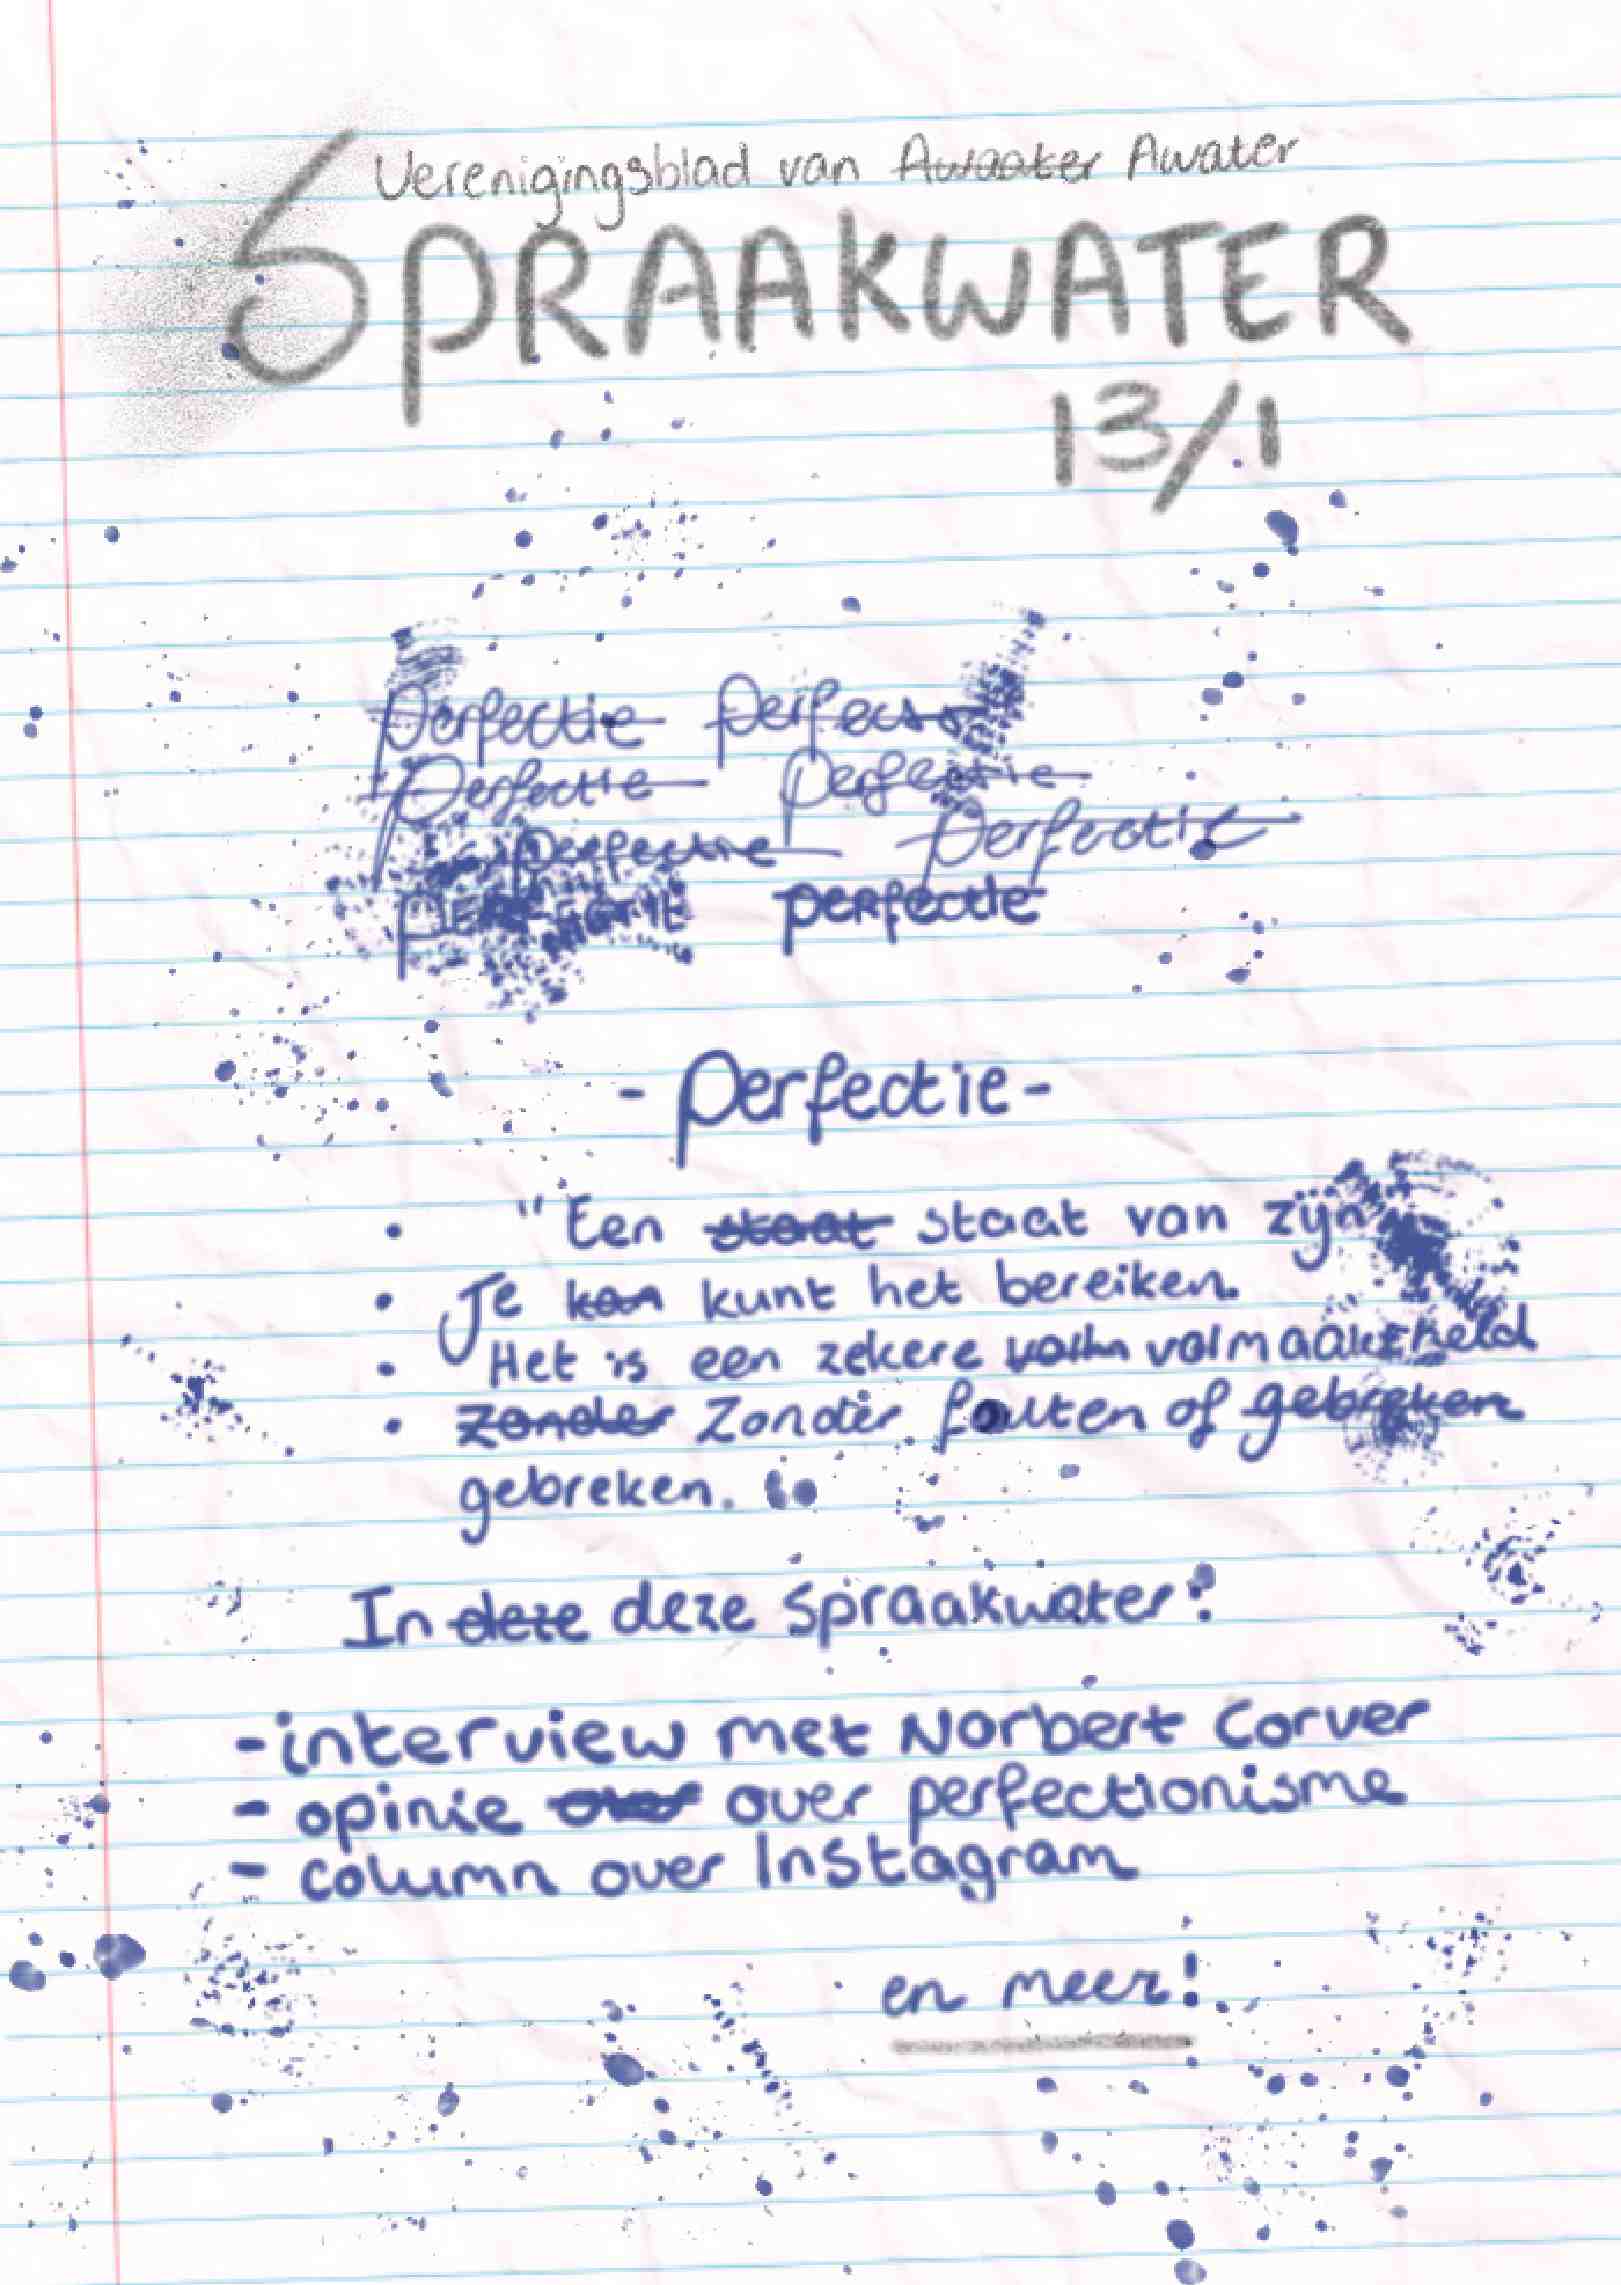 Verenigingsblad van Awaater Awater
SPRAAKWATER
13/1
perfectie perfect
perfectie perfectie
perfectie perfectie
PERFECTIE perfectie
- perfectie -
• "Een staat staat van zijn
• Je kan kunt het bereiken.
• Het is een zekere volm volmaaktheid
• zonder zonder fouten of gebreken
gebreken.
In deze deze Spraakwater:
- interview met Norbert Corver
- opinie over over perfectionisme
- column over Instagram
en meer!